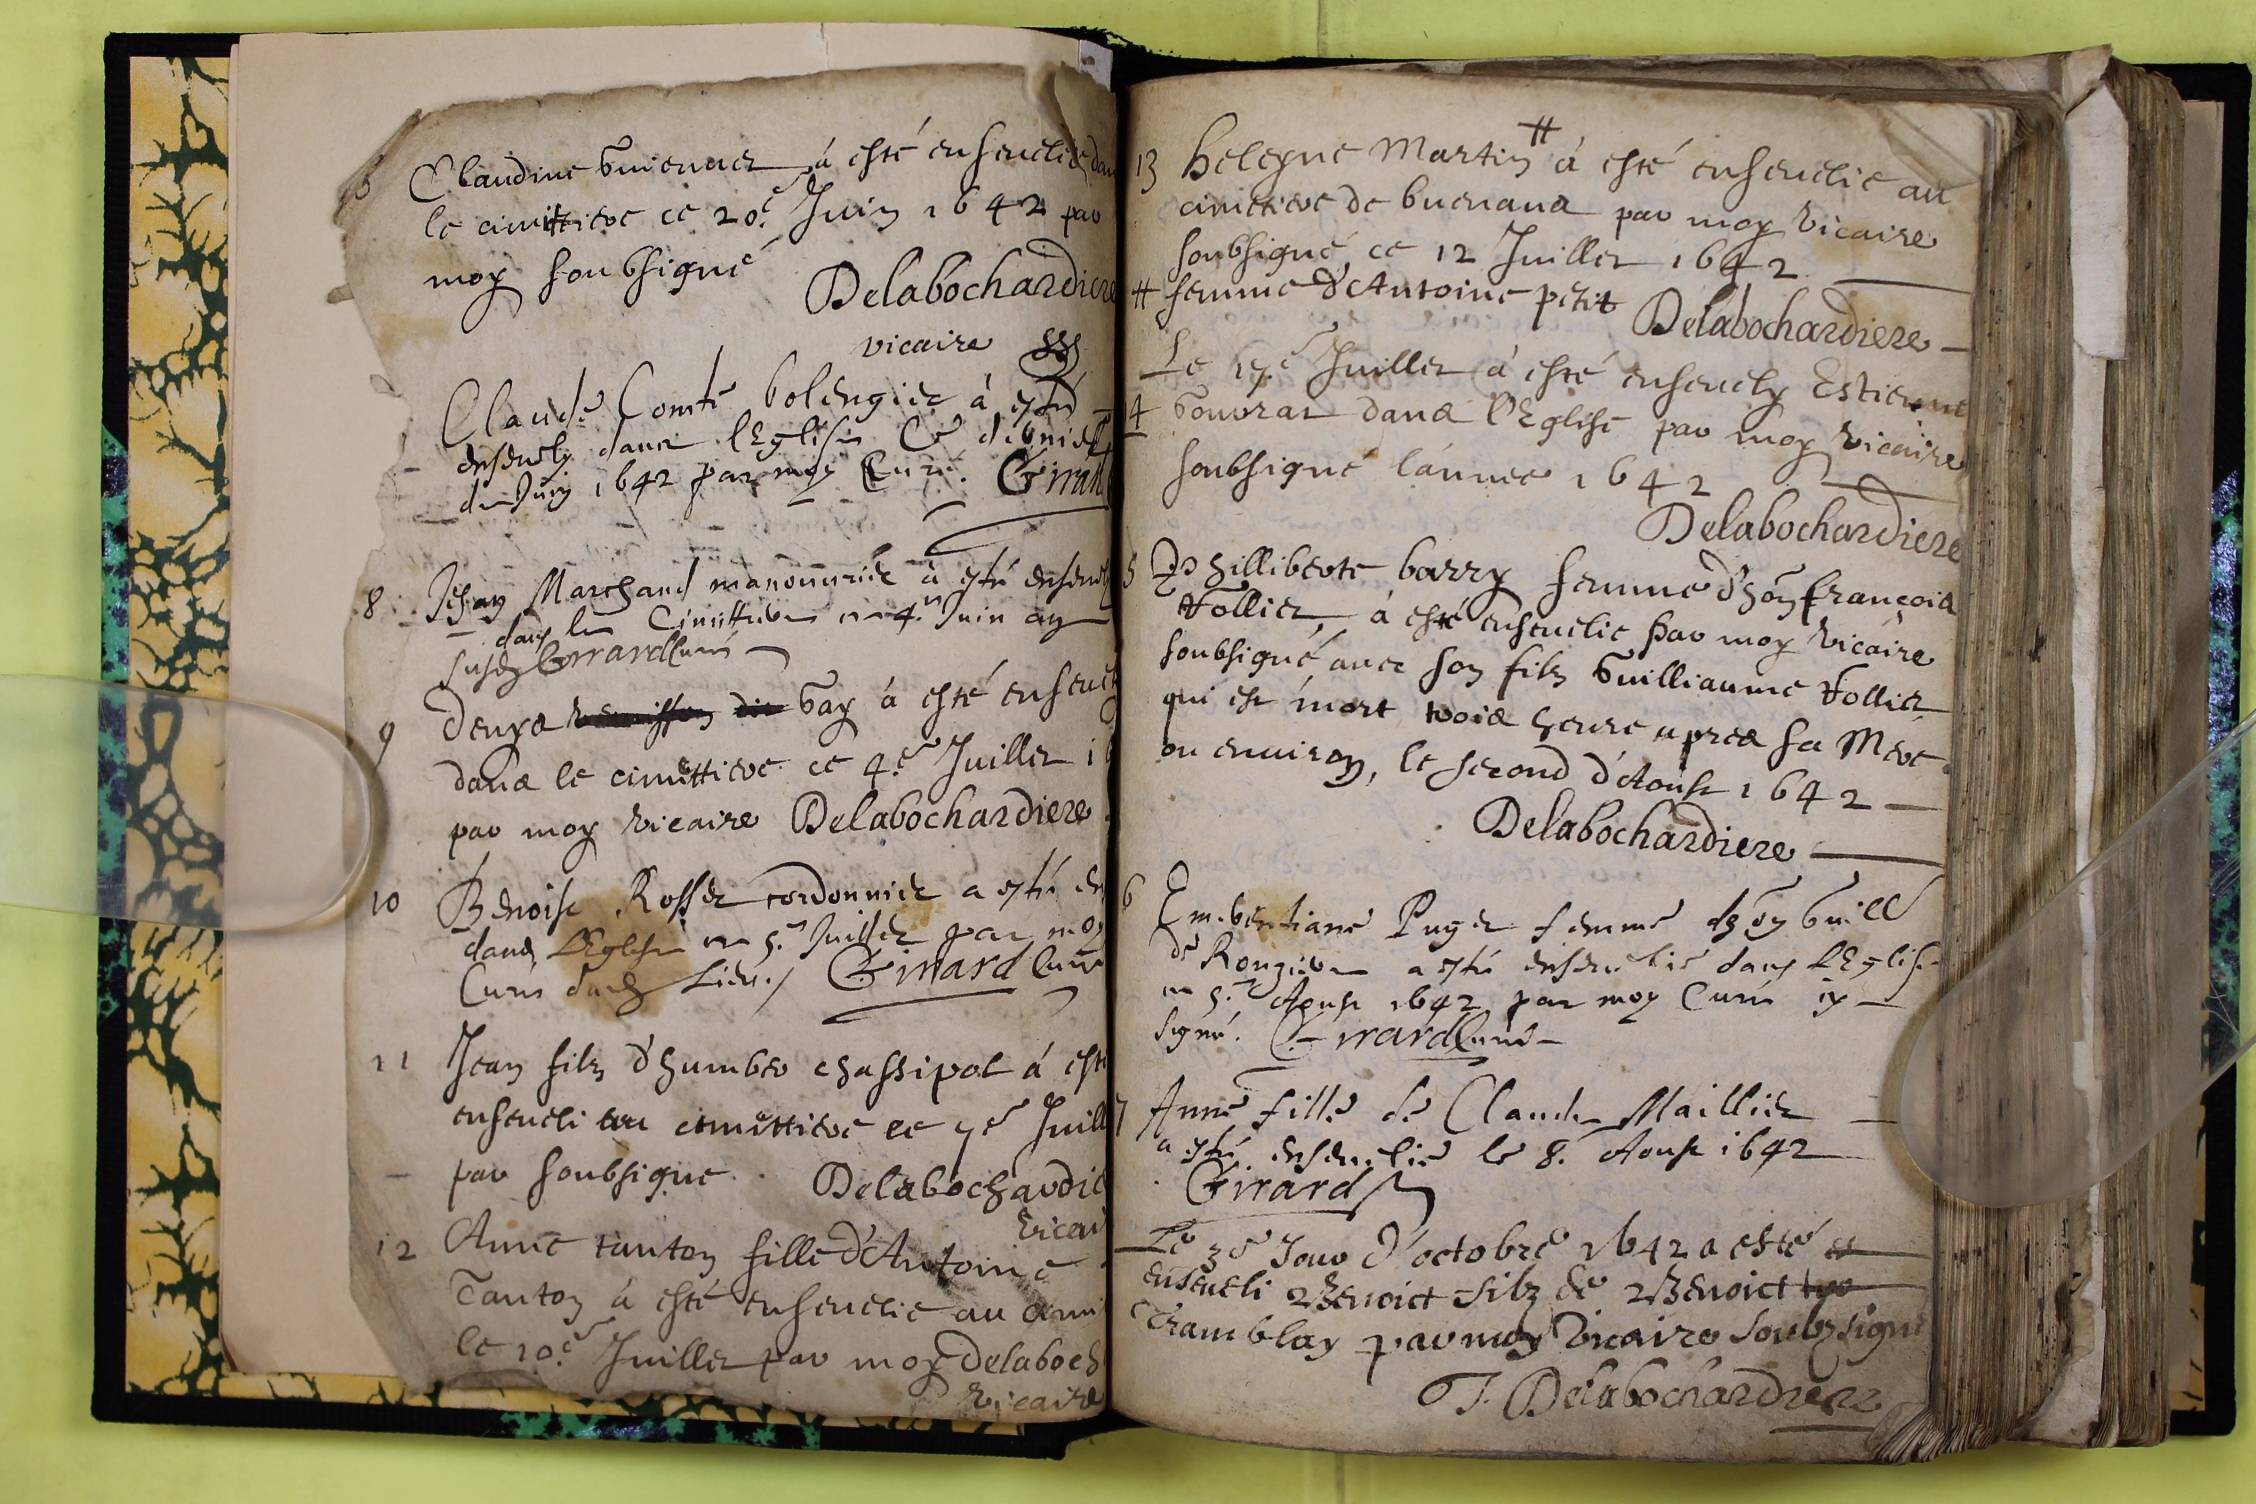 Claudine à esté enseuelie dan
le cimittiere ce 20e Juin 1642 par
moy soubsigné
Delabochardiere
vicaire
Claude Comte bolengier à esté
enseuely dans l'Eglise
du Juin 1642 par moy Curé. Girard
8 Jehan Marchand manouurier à esté enseuely
dans le Cimittiere ce 4e Juin an
susd Girard Curé
9 Denys Gay à esté enseuely
dans le cimettiere ce 4e Juillet 16
par moy vicaire Delabochardiere
10 Benoist Rosset cordonnier a esté en
dans l'Eglise ce 5e Juillet par moy
Curé dud Lieu. Girard Curé
11 Jean filz d'humber chassipol à esté
enseueli au cimettiere le 7e Juill
par soubsigné. Delabochardie
vicai
12 Anne tanton fille d'Antoine
Tanton à esté enseuelie au cimi
le 10e Juillet par moy Delaboch
vicaire
13 helegne Martin # à esté enseuelie au
cimetiere de buenans par moy vicaire
soubsigné, ce 12 Juillet 1642
# femme d'Antoine petit Delabochardiere
Le 17e Juillet à esté enseuely Estienne
4 Gonrat dans l'Eglise par moy vicaire
soubsigné l'année 1642
Delabochardiere
5 Philliberte barry femme d'hon françois
follier, à esté enseuelie par moy vicaire
soubsigné auec son filz Guilliaume follier
qui est mort trois heure apres sa Mere
ou enuiron, le second d'Aoust 1642
Delabochardiere
6 Emerentiane Puget femme d'hon Guill
de a esté enseuelie dans l'Eglise
ce 5e Aoust 1642 par moy Curé
signé. Girard Curé
7 Anne fille de Claude Maillier
a esté enseuelie le 8. Aoust 1642
Girard
Le 3e Jour d'octobre 1642 a esté
enseueli Benoict filz de Benoict
Tramblay par moy Vicaire soubzsigné
J. Delabochardiere